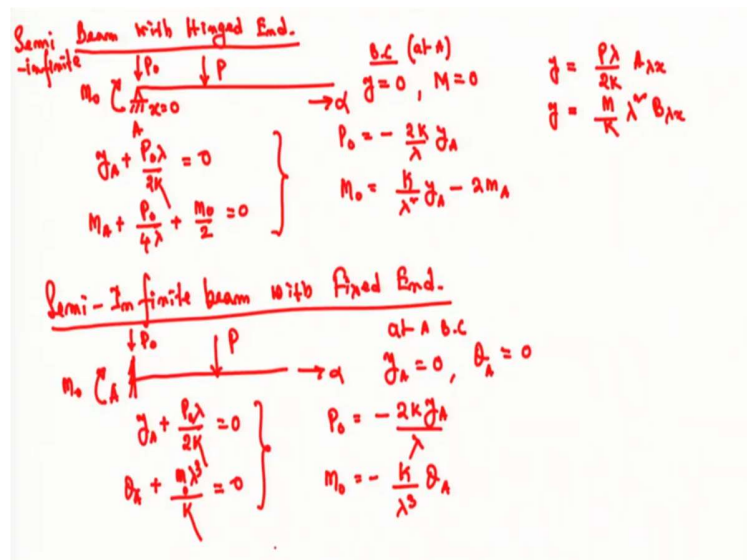 Semi-infinite Beam with Hinged End.
↓P₀ ↓P
M₀ A x=0 → α
A
B.C (at A)
y=0, M=0
y = Pλ/2K A_λx
y = M/K λ² B_λx
y_A + P₀λ/2K = 0
M_A + P₀/4λ + M₀/2 = 0
P₀ = - 2K/λ y_A
M₀ = K/λ² y_A - 2M_A
Semi-Infinite beam with Fixed End.
↓P₀ ↓P
M₀ A → α
at A B.C
y_A = 0, θ_A = 0
y_A + P₀λ/2K = 0
θ_A + M₀λ³/K = 0
P₀ = - 2K y_A/λ
M₀ = - K/λ³ θ_A